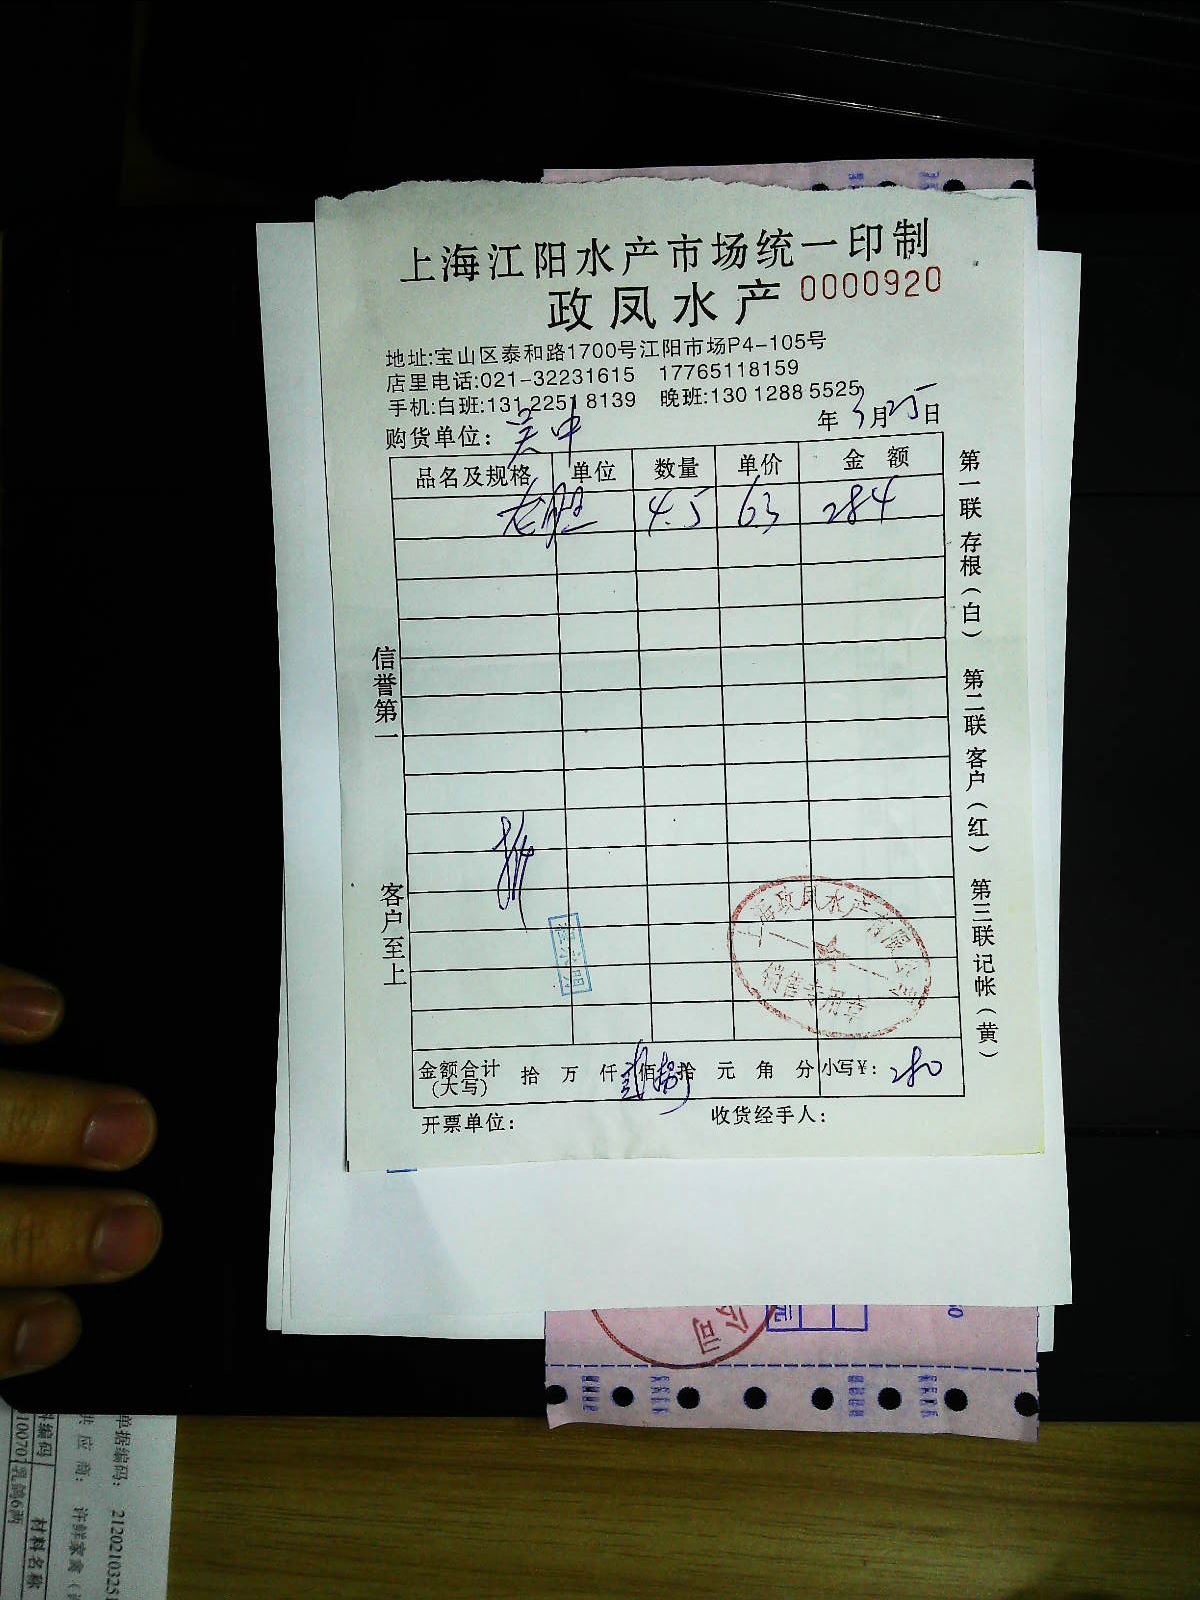 上海江阳水产市场统一印制
政凤水产 0000920
地址:宝山区泰和路1700号江阳市场P4-105号
店里电话:021-32231615 17765118159
手机:白班:131 2251 8139 晚班:130 1288 5525
购货单位: 吴中 年 3月25日
品名及规格 单位 数量 单价 金 额
龙胆 4.5 63 284
信誉第一
客户至上
第一联存根(白)
第二联客户(红)
第三联记帐(黄)
上海政凤水产有限公司
销售专用章
金额合计(大写) 拾 万 仟 贰佰 捌拾 元 角 分 小写¥: 280
开票单位: 收货经手人:
公司
元
单据编码: 2120210325
供 应 商: 许鲜家禽(
料编码 材料名称
10070 乳鸽6两